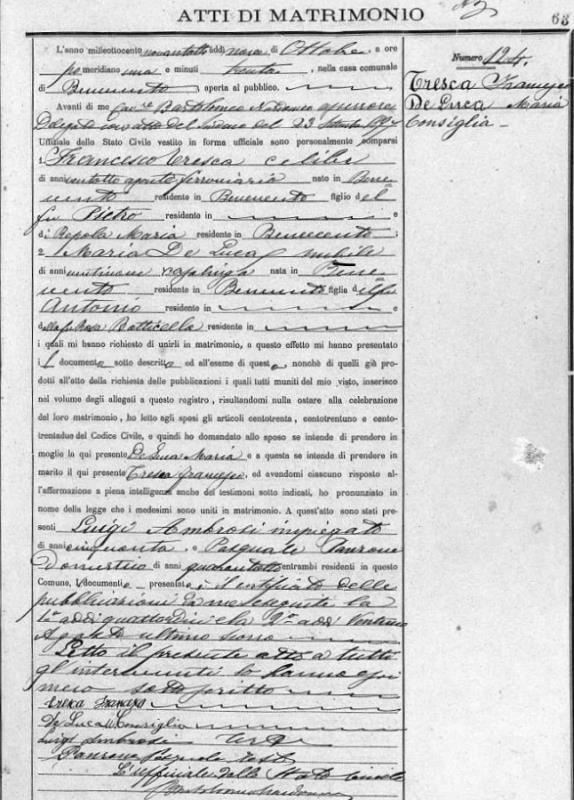 ATTI DI MATRIMONIO
68
Numero 124.
Tresca Francesco
De Luca Maria
Consiglia
L'anno milleottocento novantotto addì nove di Ottobre, a ore
pomeridiane una e minuti trenta, nella casa comunale
di Benevento, aperta al pubblico.
Avanti di me Cav. Bartolomeo assessore
Delegato con atto del Sindaco del 23 1897
Uffiziale dello Stato Civile vestito in forma ufficiale sono personalmente comparsi
1. Francesco Tresca celibe
di anni ventotto ferroviario nato in Bene
vento residente in Benevento figlio del
fu Pietro residente in e
di Repola Maria residente in Benevento
2. Maria De Luca nubile
di anni casalinga nata in Bene
vento residente in Benevento figlia del fu
Antonio residente in e
della fu Rosa Batticella residente in
i quali mi hanno richiesto di unirli in matrimonio, a questo effetto mi hanno presentato
i documenti sotto descritti ed all'esame di questi, nonchè di quelli già pro-
dotti all'atto della richiesta delle pubblicazioni i quali tutti muniti del mio visto, inserisco
nel volume degli allegati a questo registro, risultandomi nulla ostare alla celebrazione
del loro matrimonio, ho letto agli sposi gli articoli centotrenta, centotrentuno e cento-
trentadue del Codice Civile, e quindi ho domandato allo sposo se intende di prendere in
moglie la qui presente De Luca Maria e a questa se intende di prendere in
marito il qui presente Tresca Francesco, ed avendomi ciascuno risposto af-
fermativamente a piena intelligenza anche dei testimoni sotto indicati, ho pronunziato in
nome della legge che i medesimi sono uniti in matrimonio. A quest'atto sono stati pre-
senti Luigi Ambrosi impiegato
di anni cinquanta e Pasquale Panzone
domestico di anni quarantotto entrambi residenti in questo
Comune, I documenti presentati è il certificato delle
pubblicazioni da me eseguite la
1a addì quattordici e la 2a addì ventuno
Agosto ultimo scorso
Letto il presente atto a tutti
gl'intervenuti lo hanno qui
meco sottoscritto
Tresca Francesco
De Luca M Consiglia
Luigi Ambrosi teste
Panzone Pasquale teste
L'Uffiziale dello Stato Civile